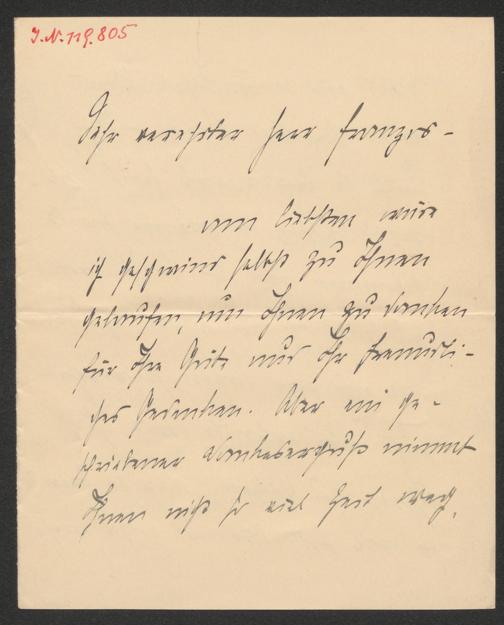 J.N. 119.805
Sehr verehrter Herr Franzos –
am liebsten wäre
ich geschwind selbst zu Ihnen
gelaufen, um Ihnen zu danken
für Ihre Güte und Ihr freundli-
ches Gedenken. Aber ein ge-
schriebener Dankeserguß nimmt
Ihnen nicht so viel Zeit weg,